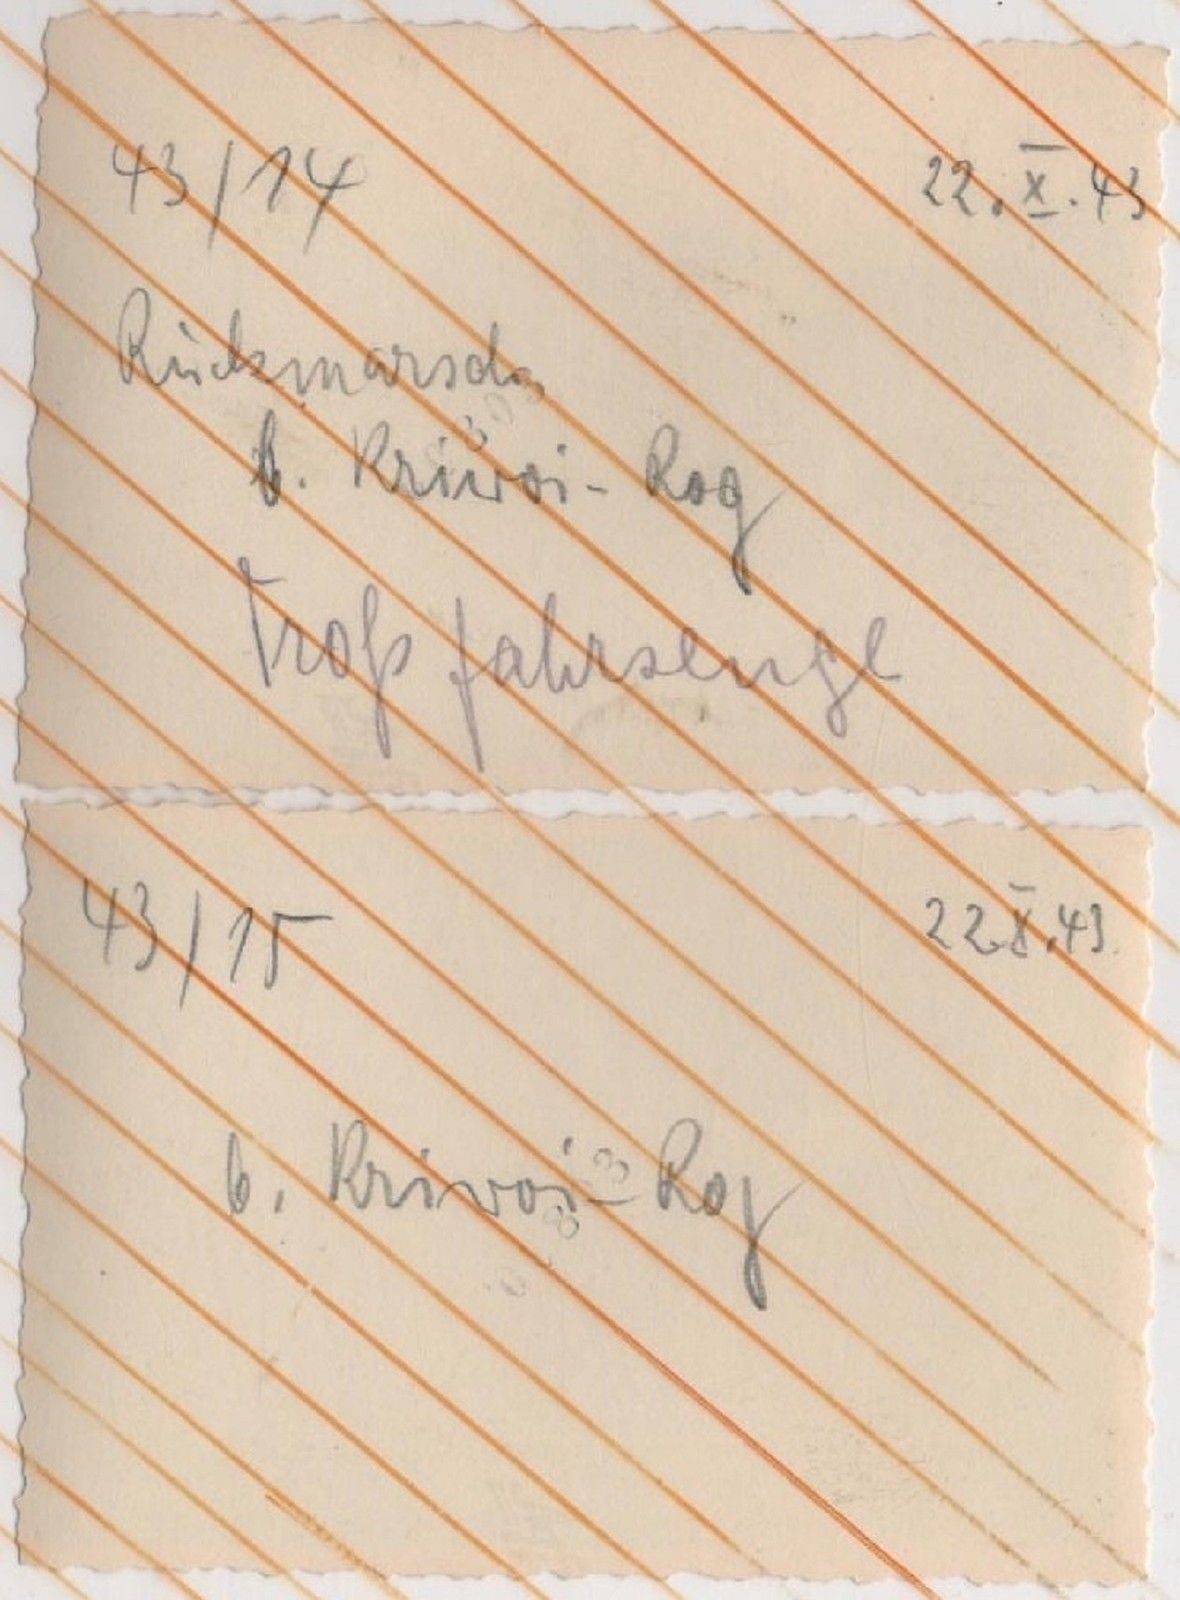 43/14
22.X.43
Rückmarsch
b. Kriwoi-Rog
Troß fahrzeuge
43/15
22.X.43
b. Krivoi-Rog